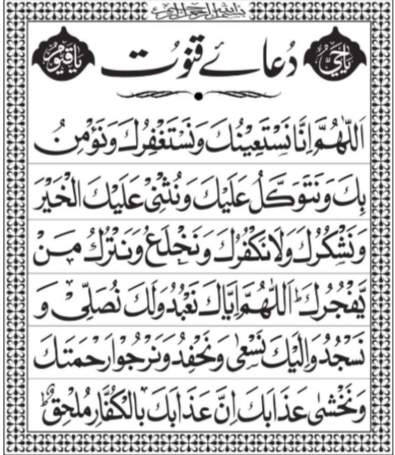 بسم الله الرحمن الرحيم
یا حیُّ
دُعائے قنوُت
یا قیومُ
اَللّٰهُمَّ اِنَّا نَسْتَعِيْنُكَ وَنَسْتَغْفِرُكَ وَنُؤْمِنُ
بِكَ وَنَتَوَكَّلُ عَلَيْكَ وَنُثْنِيْ عَلَيْكَ الْخَيْرَ
وَنَشْكُرُكَ وَلَا نَكْفُرُكَ وَنَخْلَعُ وَنَتْرُكُ مَنْ
يَّفْجُرُكَ ؕ اَللّٰهُمَّ اِيَّاكَ نَعْبُدُ وَلَكَ نُصَلِّيْ وَ
نَسْجُدُ وَاِلَيْكَ نَسْعٰى وَنَحْفِدُ وَنَرْجُوْا رَحْمَتَكَ
وَنَخْشٰى عَذَابَكَ اِنَّ عَذَابَكَ بِالْكُفَّارِ مُلْحِقٌ ؕ